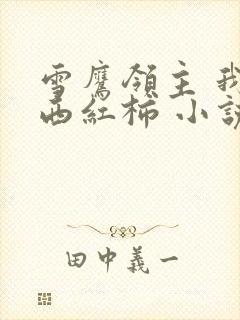 雪鷹領主 我
西紅柿 小說
田中義一